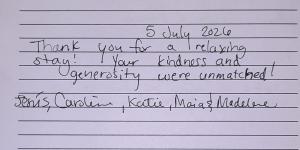 5 July 2026
Thank you for a relaxing
stay! Your kindness and
generosity were unmatched!
Jenis, Caroline, Katie, Maia & Madelene